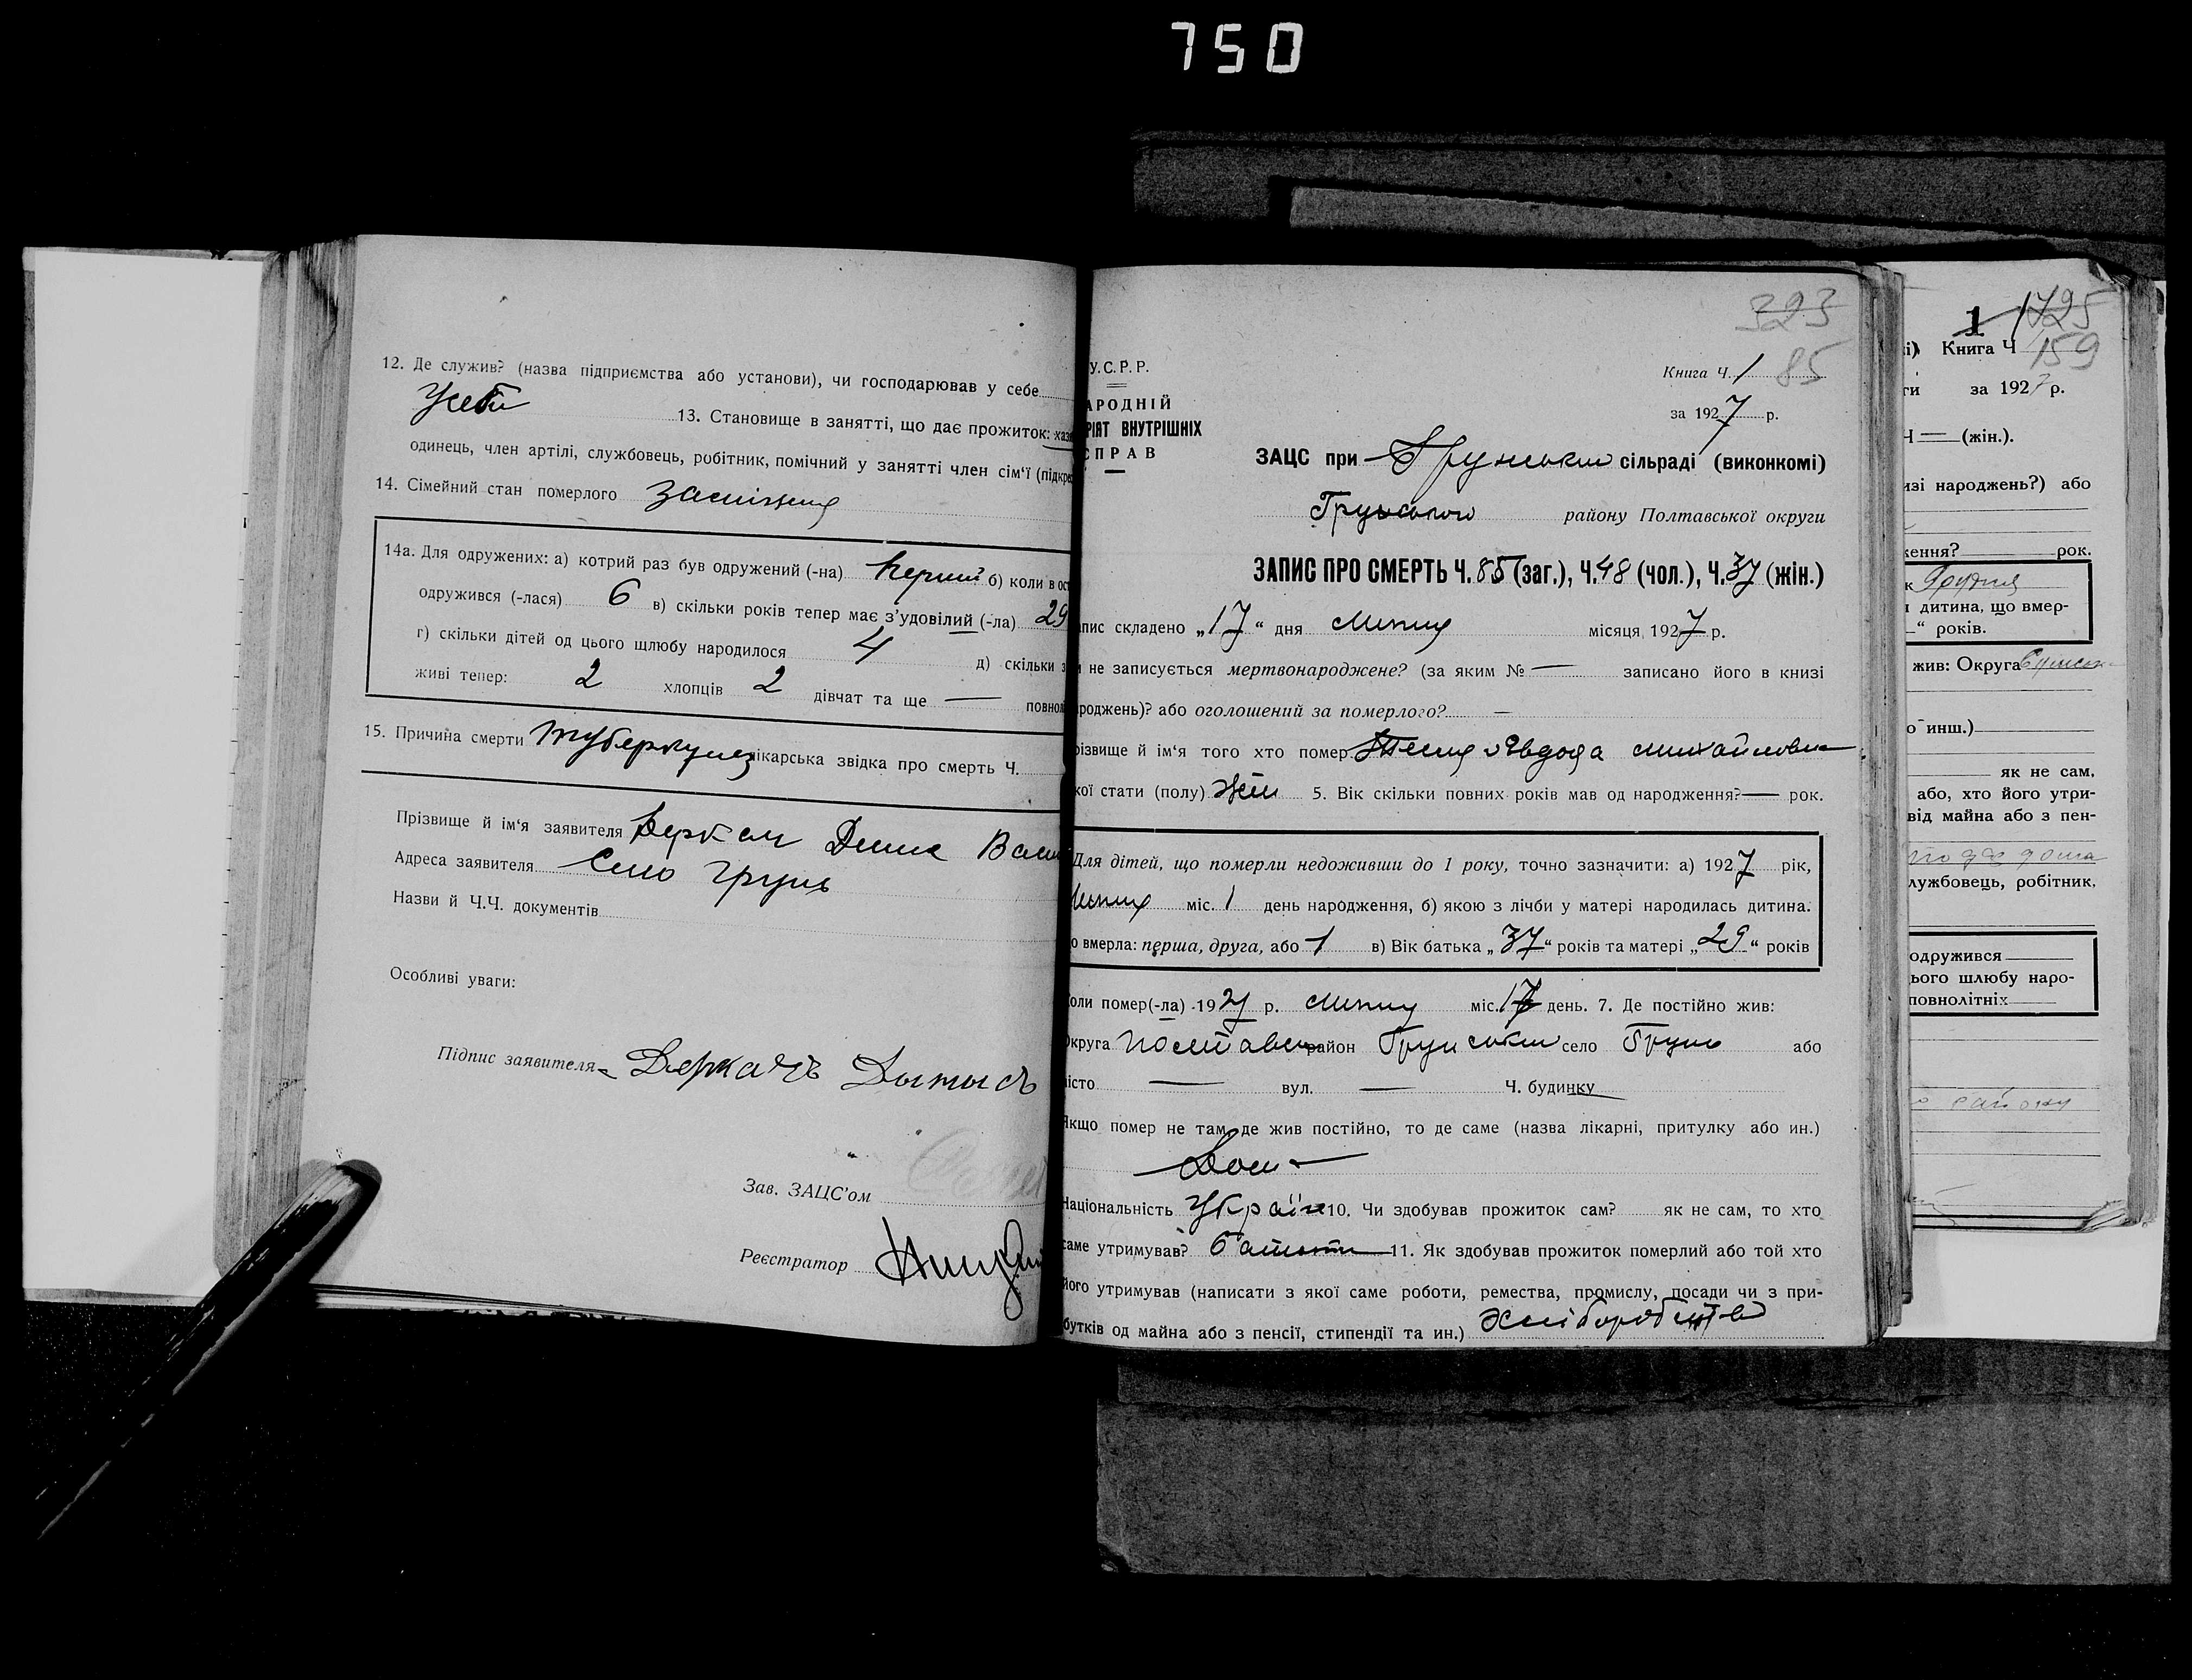 750
12. Де служив? (назва підприємства або установи), чи господарював у себе
Усеби 13. Становище в занятті, що дає прожиток:
одинець, член артілі, службовець, робітник, помічний у занятті член сім'ї
14. Сімейний стан померлого заміжня
14а. Для одружених: а) котрий раз був одружений (-на) перший б) коли в
одружився (-лася) 6 в) скільки років тепер має з'удовілий (-ла) 29
г) скільки дітей од цього щлюбу народилося 4 д) скільки
живі тепер: 2 хлопців 2 дівчат та ще —
15. Причина смерти туберкульоз лікарська звідка про смерть Ч.
Прізвище й ім'я заявителя Деркач Денис
Адреса заявителя Село Грунь
Назви й Ч.Ч. документів
Особливі уваги:
Підпис заявителя Деркачъ Дынысъ
Зав. ЗАЦС'ом
Реєстратор
У.С.Р.Р.
АРОДНІЙ
РІЯТ ВНУТРІШНІХ
СПРАВ
323
Книга Ч. 1 85
за 1927 р.
ЗАЦС при Грунській сільраді (виконкомі)
Грунського району Полтавської округи
ЗАПИС ПРО СМЕРТЬ Ч. 85 (заг.), Ч. 48 (чол.), Ч. 37 (жін.)
апис складено „17“ дня Липня місяця 1927 р.
не записується мертвонароджене? (за яким № — записано його в книзі
роджень)? або оголошений за померлого? —
різвище й ім'я того хто помер Явдоха Михайловна
кої стати (полу) Жін 5. Вік скільки повних років мав од народження? — рок.
Для дітей, що померли недоживши до 1 року, точно зазначити: а) 1927 рік,
Липня міс. 1 день народження, б) якою з лічби у матері народилась дитина.
о вмерла: перша, друга, або 1 в) Вік батька „37“ років та матері „29“ років
оли помер(-ла) 1927 р. Липня міс. 17 день. 7. Де постійно жив:
круга Полтавська район Грунський село Грунь або
місто — вул. — Ч. будинку
Якщо помер не там, де жив постійно, то де саме (назва лікарні, притулку або ин.)
Дома
Національність Україн 10. Чи здобував прожиток сам? як не сам, то хто
саме утримував? батьки 11. Як здобував прожиток померлий або той хто
його утримував (написати з якої саме роботи, ремества, промислу, посади чи з при-
бутків од майна або з пенсії, стипендії та ин.) Хліборобство
1 1725
Книга Ч 159
за 1927 р.
— (жін.).
изі народжень?) або
ження? рок.
Грудня
дитина, що вмер-
“ років.
жив: Округа
о инш.)
як не сам,
або, хто його утри-
від майна або з пен-
лужбовець, робітник,
одружився
ього шлюбу наро-
повнолітніх
району